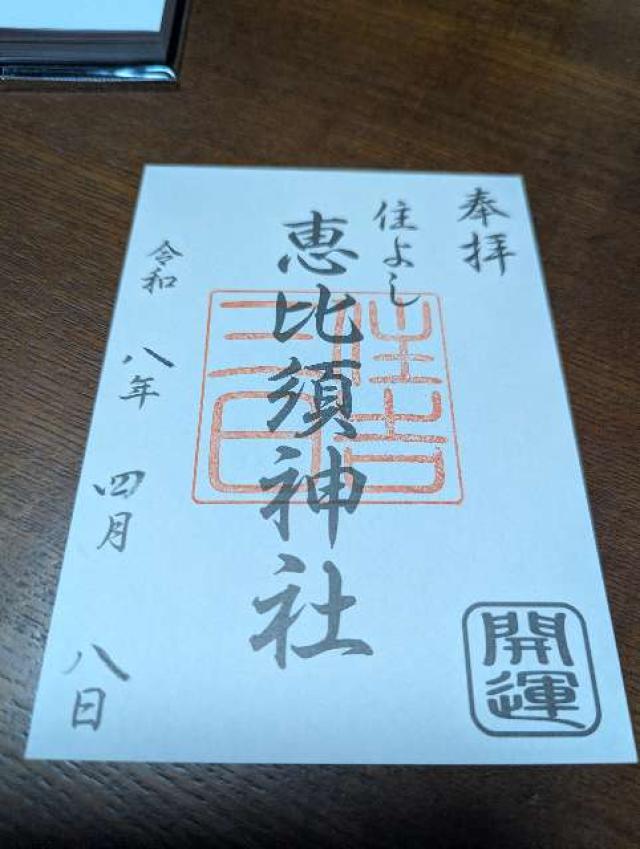 奉拝
住よし
恵比須神社
住吉
三日
令和 八年 四月 八日
開運